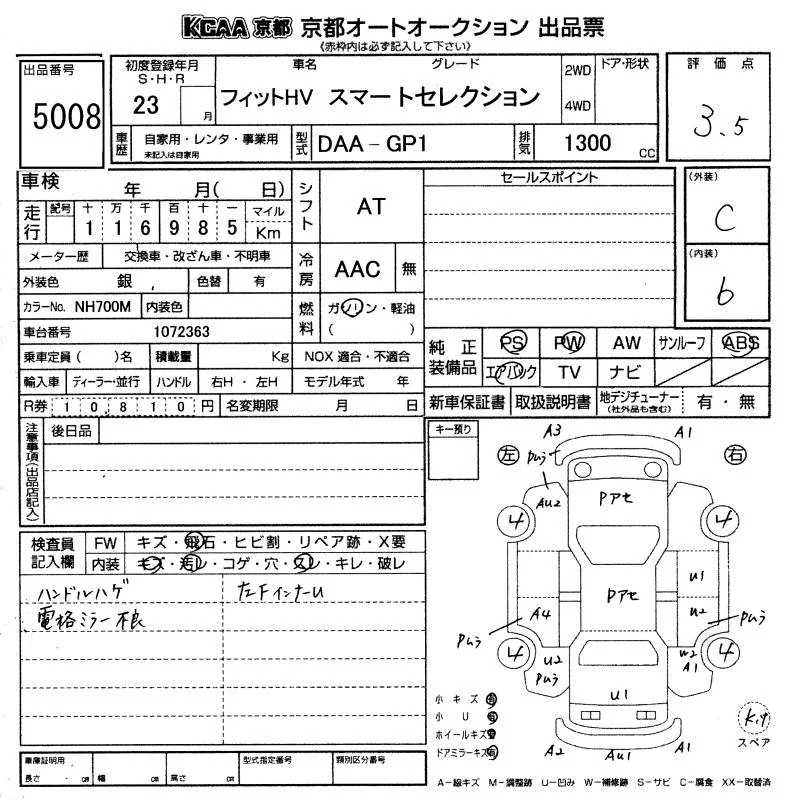 KCAA 京都 京都オートオークション 出品票
《赤枠内は必ず記入して下さい》
出品番号
5008
初度登録年月
S・H・R
23 月
車名 グレード
フィットHV スマートセレクション
2WD
4WD
ドア・形状
評価点
3.5
車歴 自家用・レンタ・事業用
未記入は自家用
型式 DAA-GP1
排気 1300 CC
車検 年 月( 日)
走行 記号 十 万 千 百 十 一 マイル
1 1 6 9 8 5 Km
シフト AT
セールスポイント
(外装)
C
(内装)
b
メーター歴 交換車・改ざん車・不明車
冷房 AAC 無
外装色 銀 色替 有
カラーNo. NH700M 内装色
燃料 ガソリン・軽油
( )
車台番号 1072363
乗車定員( )名 積載量 Kg NOX 適合・不適合
輸入車 ディーラー・並行 ハンドル 右H・左H モデル年式 年
R券 10,810円 名変期限 月 日
純正装備品 PS PW AW サンルーフ ABS
エアバック TV ナビ
新車保証書 取扱説明書 地デジチューナー
(社外品も含む)
有・無
注意事項(出品店記入)
後日品
キー預り
左 右
A3 A1
Pムラ
AU2 Pアセ
4 4
U1
Pアセ
A4 U2
Pムラ Pムラ
4 4
U2 W2
Pムラ A1
U1
A2 AU1 A1
検査員記入欄 FW キズ・飛石・ヒビ割・リペア跡・X要
内装 キズ・汚レ・コゲ・穴・スレ・キレ・破レ
ハンドルハゲ 左FインナーU
電格ミラー不良
小キズ 有
小U 有
ホイールキズ 有
ドアミラーキズ 有
キット
スペア
車庫証明用
長さ ・ cm 幅 cm 高さ cm
型式指定番号
類別区分番号
A-線キズ M-調整跡 U-凹み W-補修跡 S-サビ C-腐食 XX-取替済